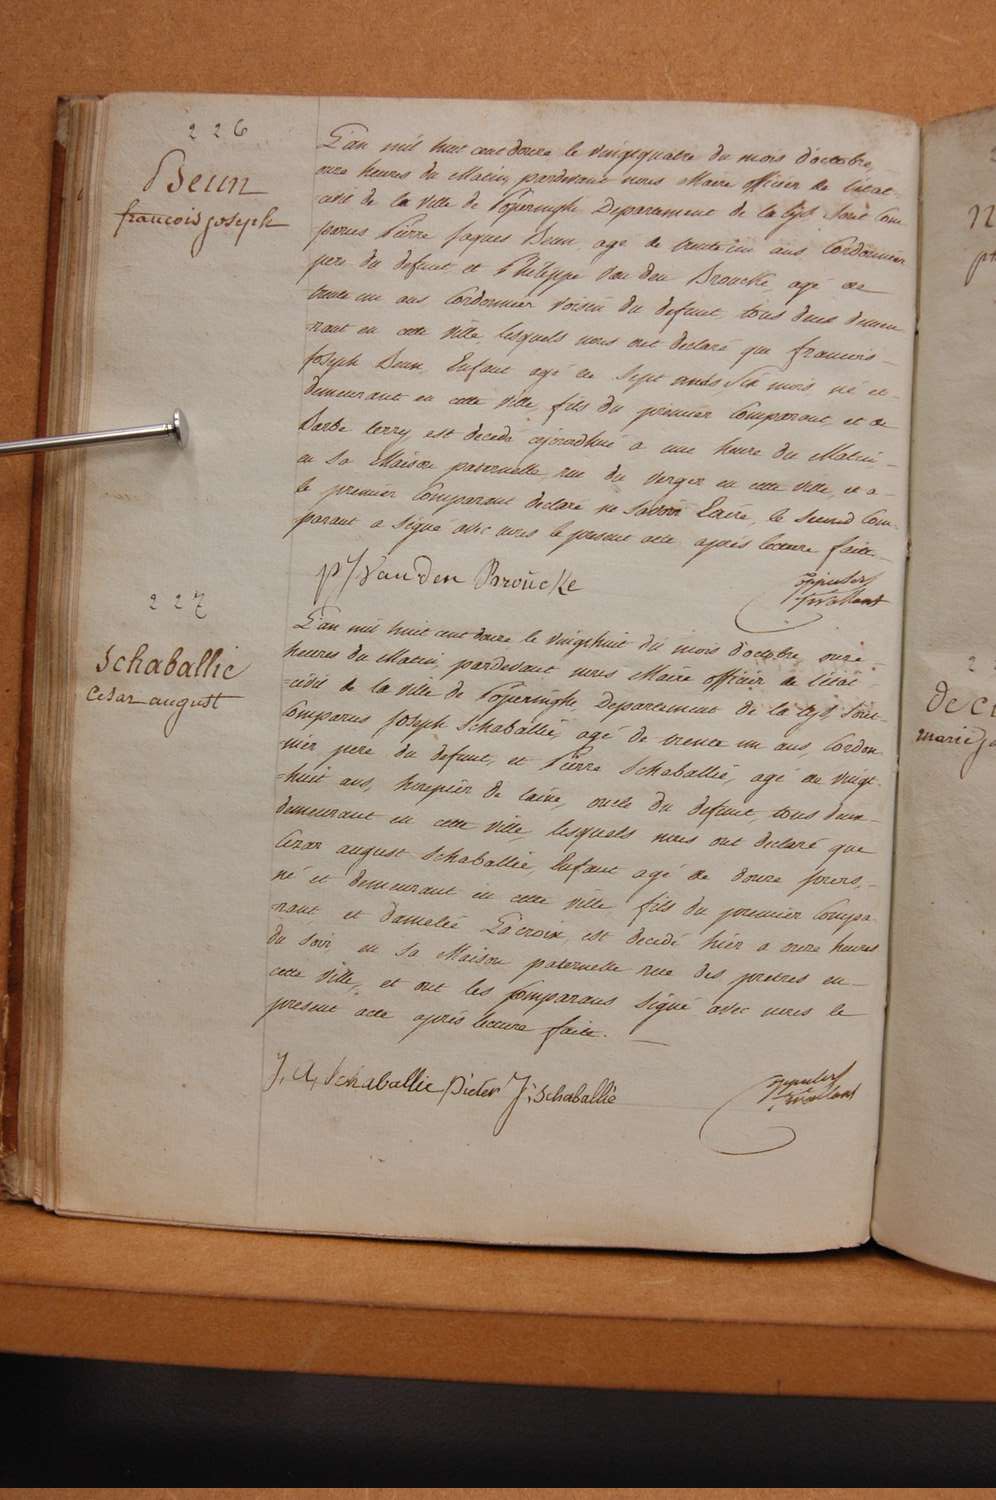 226
Beun
francois joseph
L'an mil huit cent douze le vingtquatre du mois d'octobre,
onze heures du Matin, pardevant nous Maire officier de l'état
civil de la Ville de Poperinghe Departement de la Lys Sont Com
parus Pierre Jaques Beun agé de trente un ans, Cordonnier
pere du defunt et Philippe Van den Broucke, agé de
trente un ans Cordonnier Voisin du defunt, tous deux demeu
rant en cette Ville, lesquels nous ont declaré que francois
Joseph Beun, Enfant agé de Sept mois, né et
demeurant en cette Ville, fils du premier Comparant, et de
Barbe Terry, est decedé ajourdhui a une heure du Matin
en Sa Maison paternelle, rue du Verger en cette Ville, et a
le premier Comparant declaré ne Savoir Ecrire, le Second Com
parant a Signé avec nous le present acte après lecture faite
pJ Van Den Broücke
227
Schaballie
Cesar august
L'an mil huit cent douze le vingthuit du mois d'octobre onze
heures du Matin, pardevant nous Maire officier de l'état
civil de la Ville de Poperinghe Departement de la Lys Sont
Comparus Joseph Schaballié, agé de trente un ans, Cordon
nier pere du defunt, et Pierre Schaballié, agé de vingt
huit ans, de laine, oncle du defunt, tous deux
demeurant en cette ville, lesquels nous ont declaré que
Cezar august Schaballié, Enfant agé de douze jours,
né et demeurant en cette ville fils du premier Compa
rant et d'amelie Lacroix, est decedé hier a onze heures
du Soir, en Sa Maison paternelle rue des pretres en
cette Ville, et ont les Comparans Signé avec nous le
present acte après lecture faite.
J, A, Schaballie Pieter J; Schaballié
De C
marie j